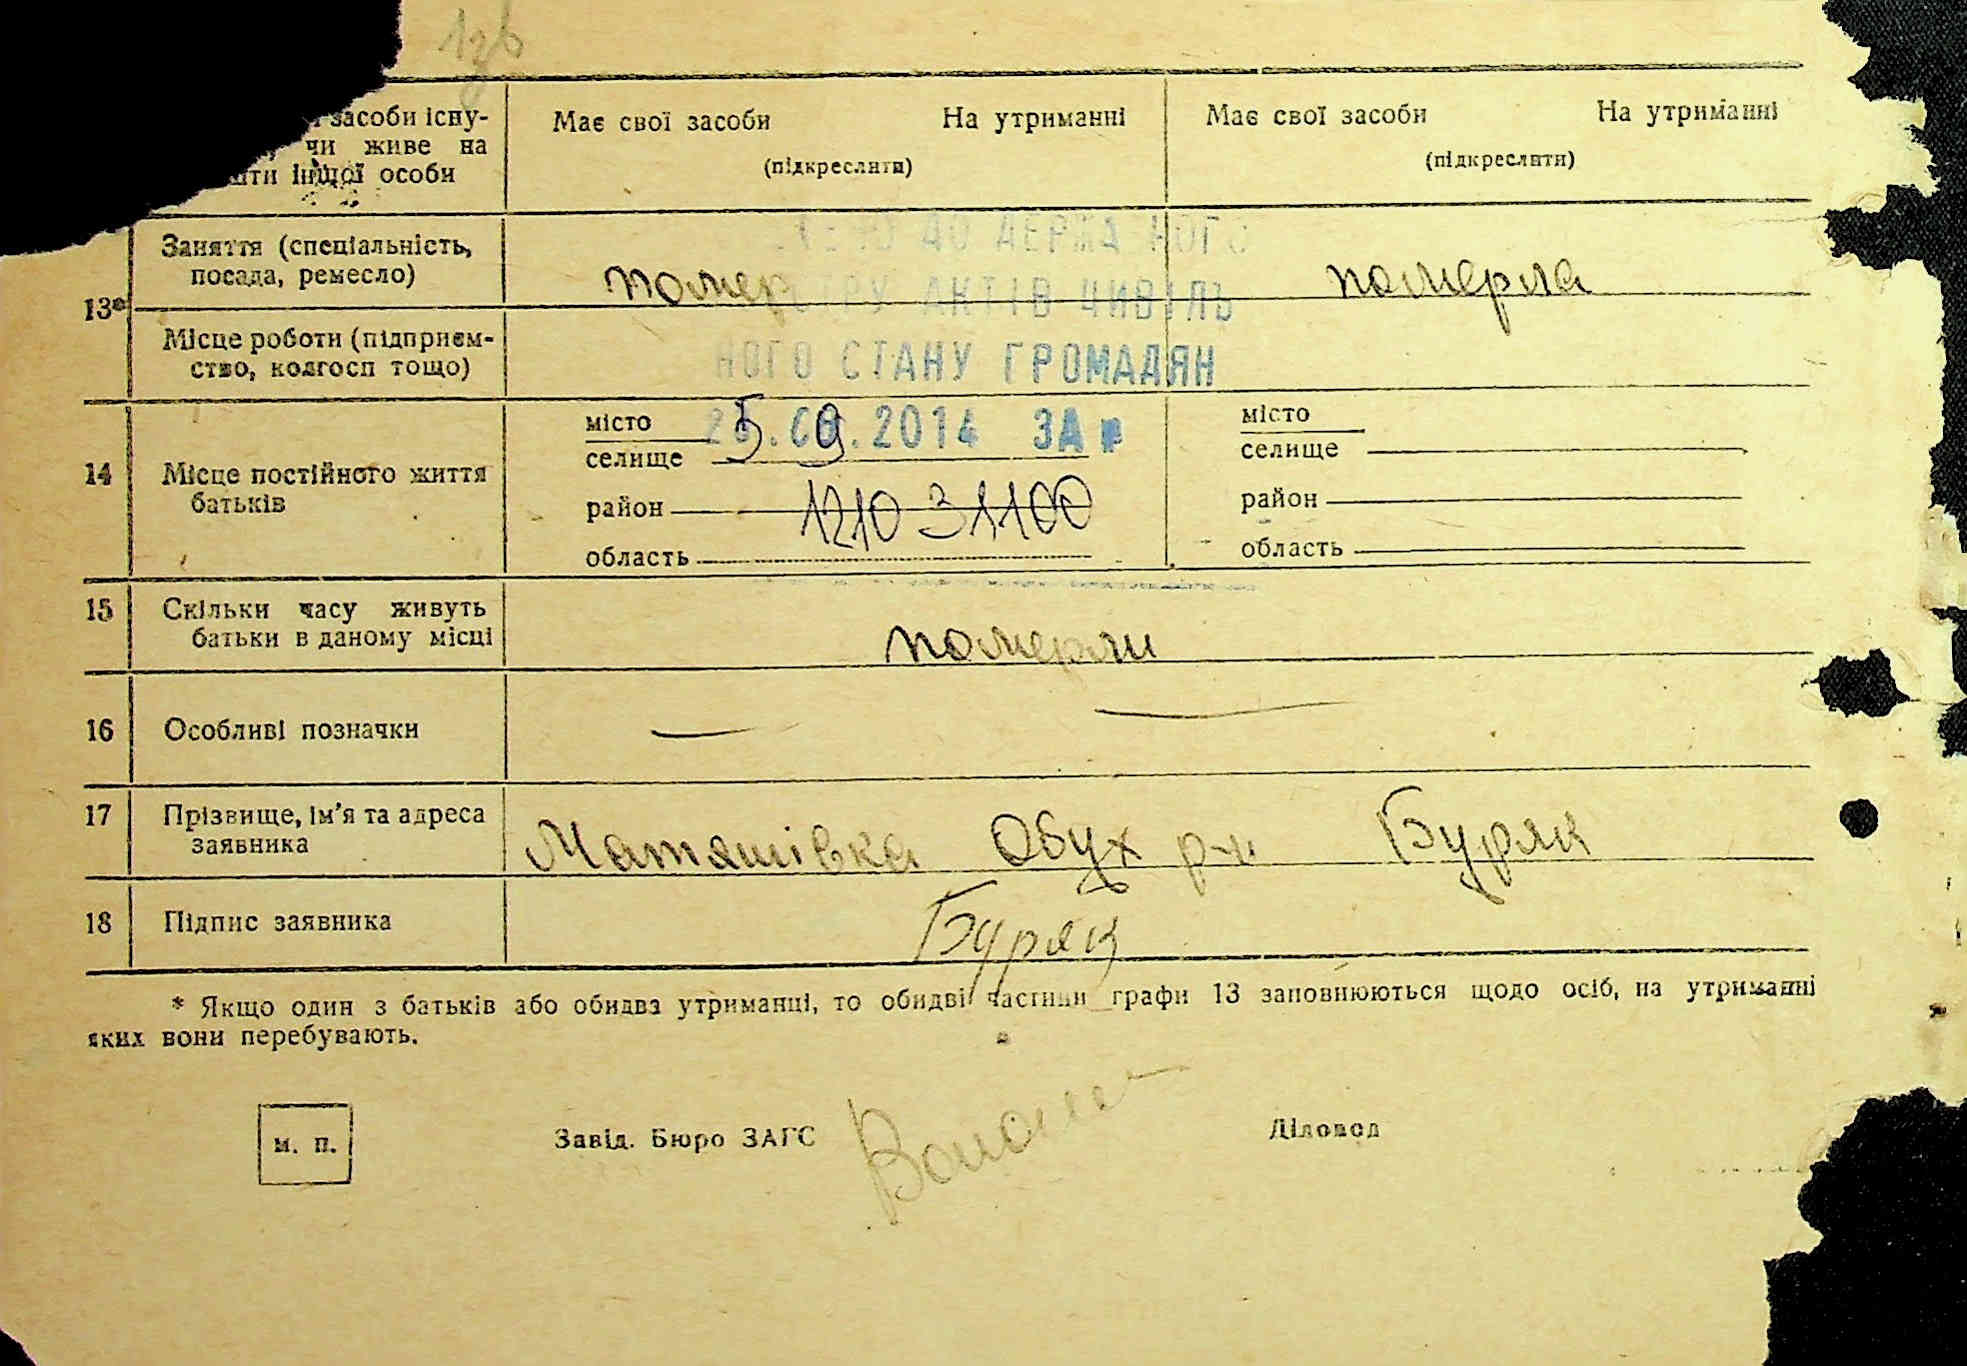 засоби існу-
чи живе на
інщої особи
Має свої засоби На утриманні
(підкреслити)
Має свої засоби На утриманні
(підкреслити)
13*
Заняття (спеціальність,
посада, ремесло)
помер
померла
ДО ДЕРЖА НОГО
АКТІВ ЦИВІЛЬ
НОГО СТАНУ ГРОМАДЯН
25.09.2014 ЗА №
Місце роботи (підприєм-
ство, колгосп тощо)
14
Місце постійного життя
батьків
місто
селище
район 1210 31100
область
місто
селище
район
область
15
Скільки часу живуть
батьки в даному місці
померли
16
Особливі позначки
— —
17
Прізвище, ім'я та адреса
заявника
Матяшівка Обух р-н Буряк
18
Підпис заявника
Буряк
* Якщо один з батьків або обидва утриманці, то обидві частини графи 13 заповнюються щодо осіб, на утриманні
яких вони перебувають.
м. п.
Завід. Бюро ЗАГС
Діловод